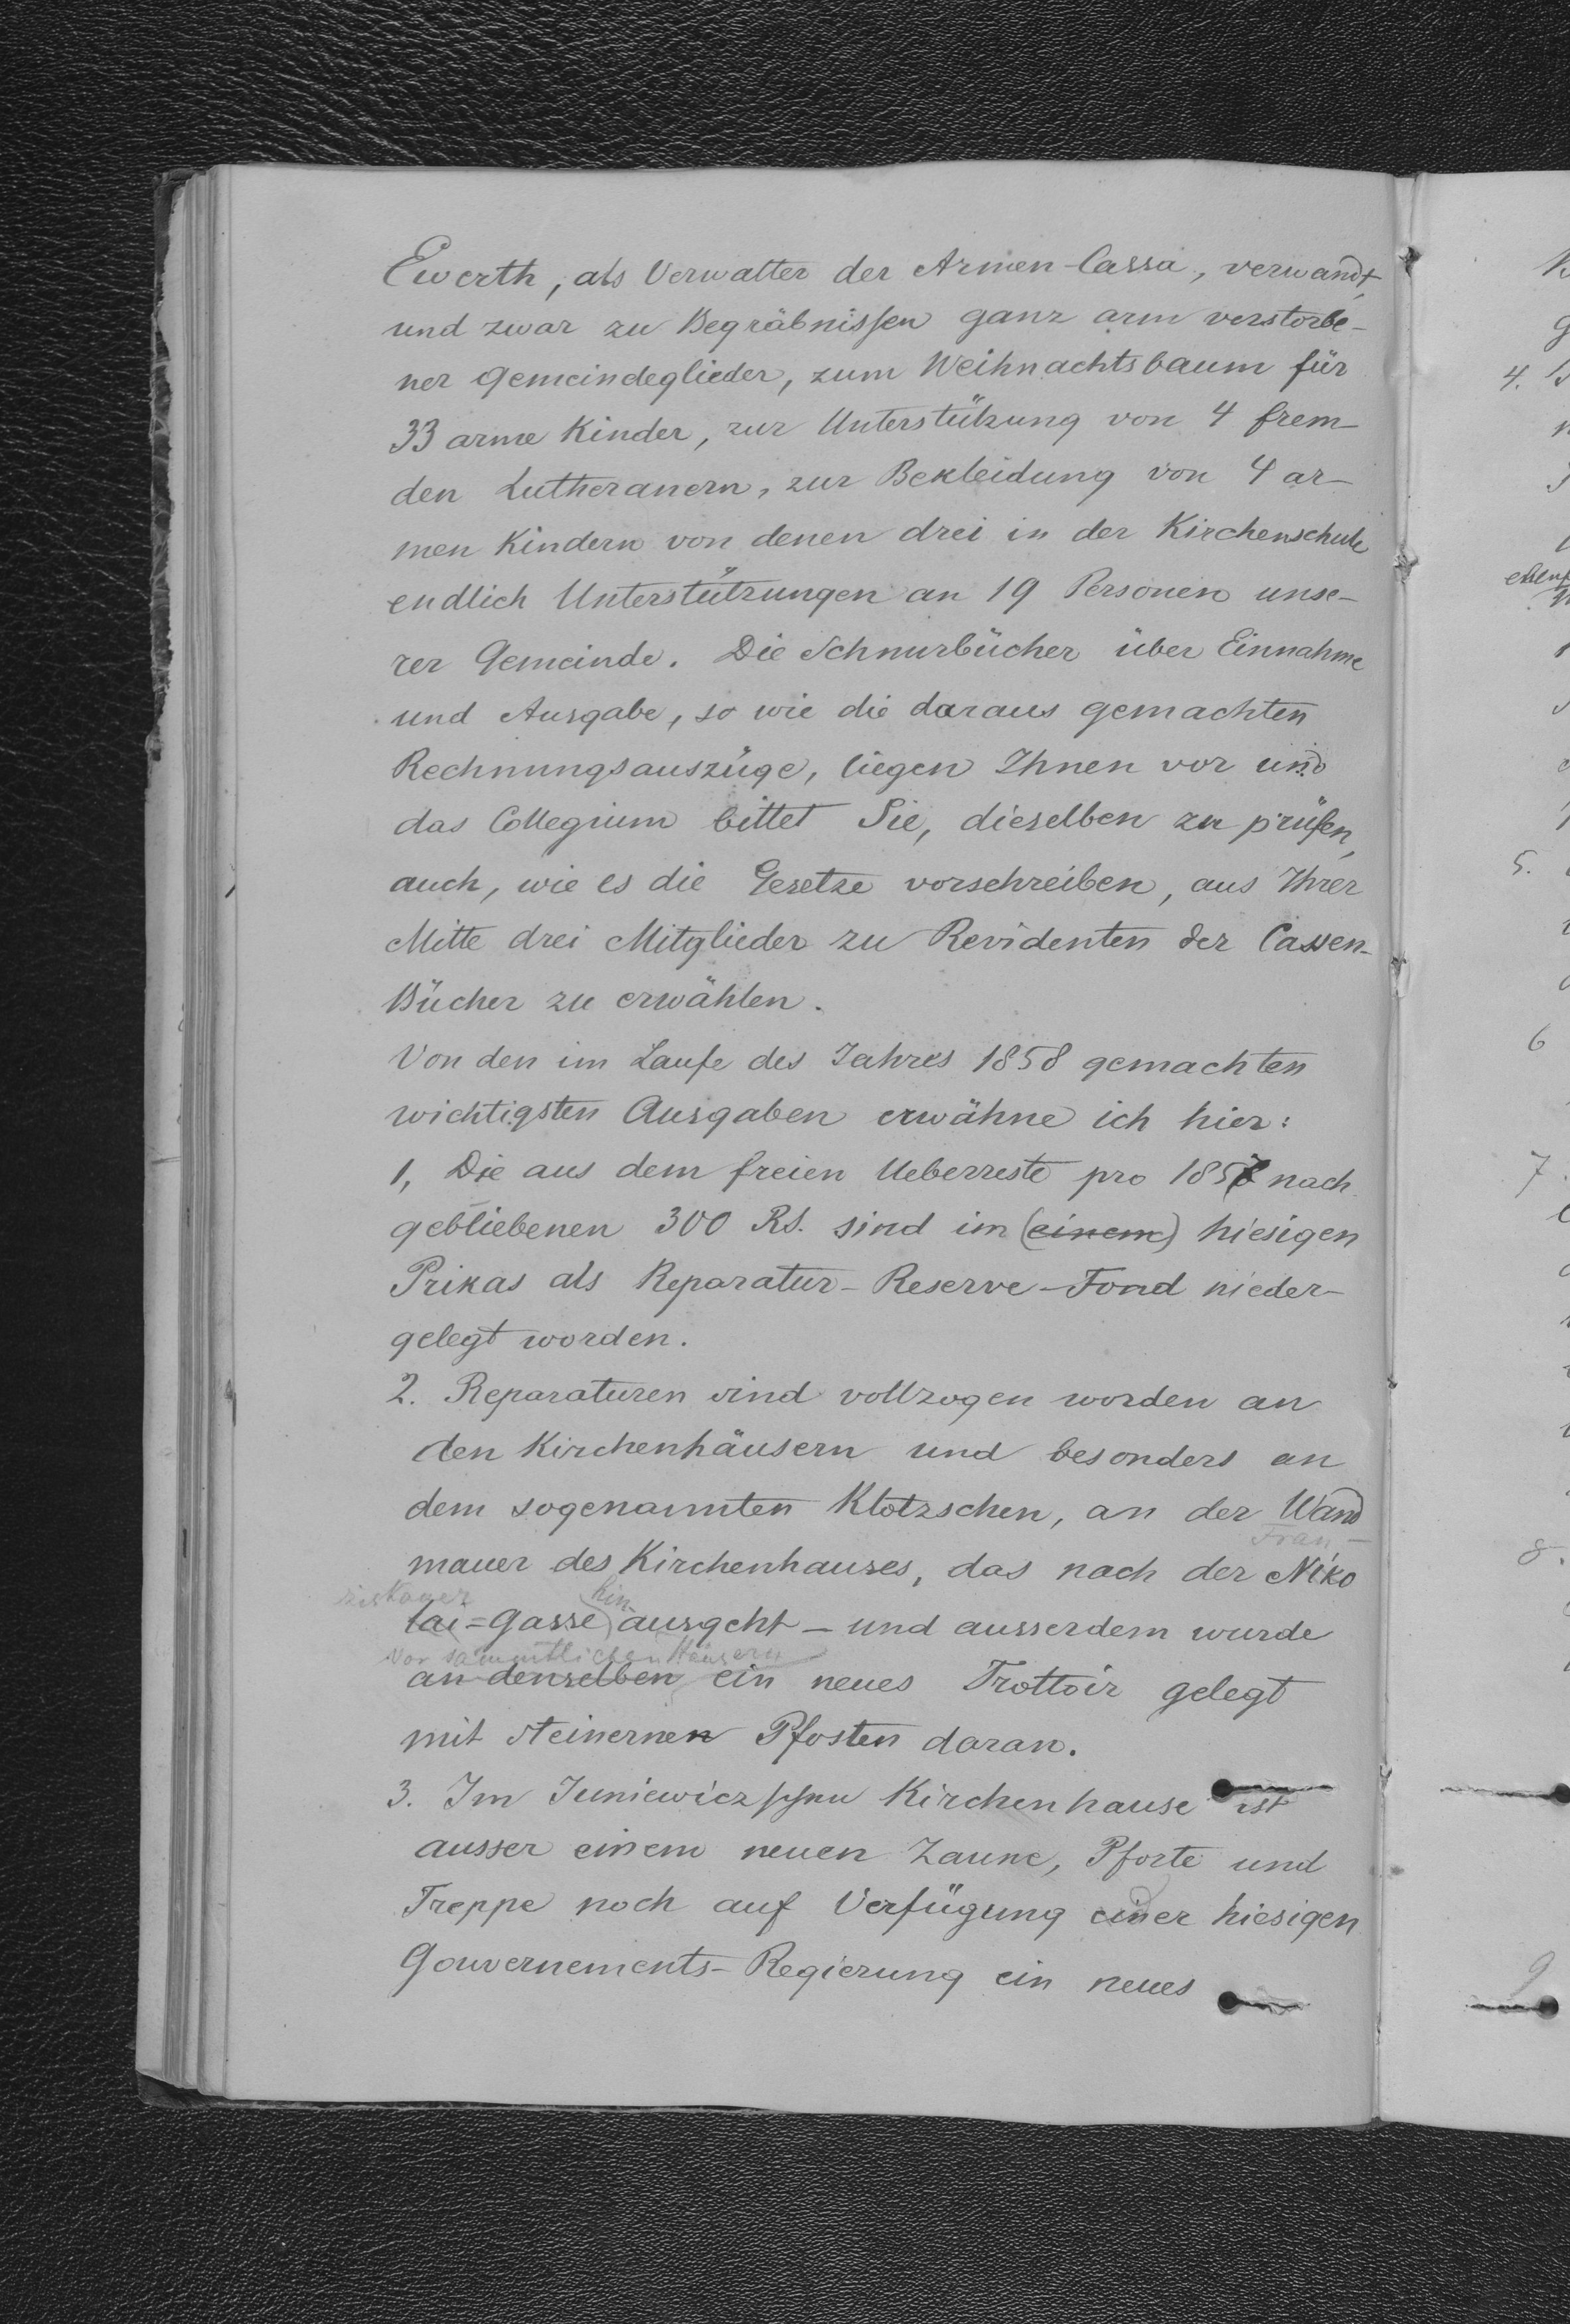 Ewerth, als Verwalter der Armen-Cassa, verwandt,
und zwar zu Begräbnissen ganz arm verstorbe-
ner Gemeindeglieder, zum Weihnachtsbaum für
33 arme Kinder, zur Unterstützung von 4 frem-
den Lutheranern, zur Bekleidung von 4 ar-
men Kindern von denen drei in der Kirchenschule
endlich Unterstützungen an 19 Personen unse-
rer Gemeinde. Die Schnurbücher über Einnahme
und Ausgabe, so wie die daraus gemachten
Rechnungsauszüge, liegen Ihnen vor und
das Collegium bittet Sie, dieselben zu prüfen,
auch, wie es die Gesetze vorschreiben, aus Ihrer
Mitte drei Mitglieder zu Revidenten der Cassen-
Bücher zu erwählen.
Von den im Laufe des Jahres 1858 gemachten
wichtigsten Ausgaben erwähne ich hier:
1, Die aus dem freien Ueberreste pro 1857 nach
gebliebenen 300 RS. sind im (einem) hiesigen
Prikas als Reparatur-Reserve-Fond nieder-
gelegt worden.
2. Reparaturen sind vollzogen worden an
den Kirchenhäusern und besonders an
dem sogenannten Klotzschen, an der Wand
Fran-
mauer des Kirchenhauses, das nach der Niko
ziskaner hin-
lai=Gasse ausgeht – und ausserdem wurde
vor sämmtlichen Häusern
an denselben ein neues Trottoir gelegt
mit steinernen Pfosten daran.
3. Im Juniewiczschen Kirchenhause ist
ausser einem neuen Zaune, Pforte und
Treppe noch auf Verfügung einer hiesigen
Gouvernements-Regierung ein neues
4.
5.
6
7.
8.
9